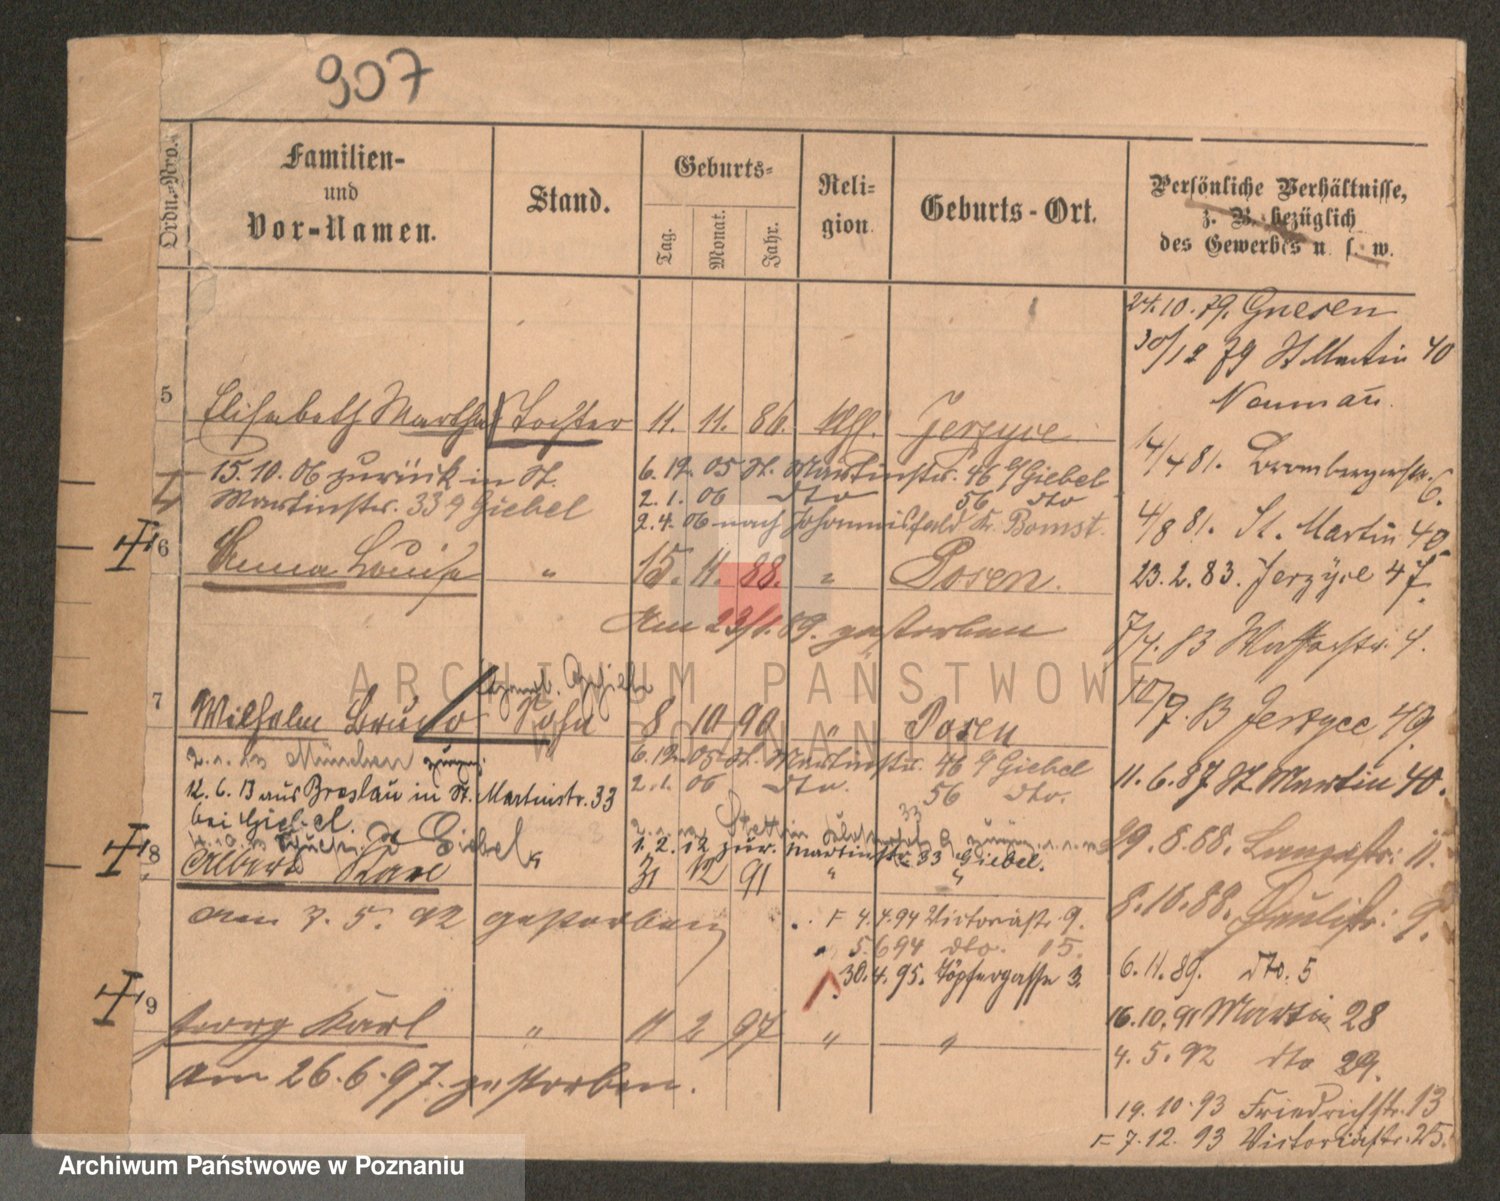 907
Ordn.-Nro.
Familien-
und
Vor-Namen.
Stand.
Geburts-
Tag.
Monat.
Jahr.
Reli-
gion
Geburts-Ort.
Persönliche Verhältnisse,
z. B. bezüglich
des Gewerbes u. s. w.
24.10.79. Gnesen
30/12 79 St Martin 40
Neumann.
5 Elisabeth Martha Tochter 11. 11. 86. Jerzyce
15.10.06 zurück in St.
Martinstr. 33 Giebel
6.12.05 St. Martinstr. 46 Giebel
2.1.06 dto 56 dto
2.4.06 nach Johannisfeld Kr. Bomst.
4/4 81. Brombergerstr. 6.
4/8 81. St. Martin 40
23.2.83. Jerzyce 47.
6 Anna Louise " 15. 11. 88. " Posen.
Am 23/1.89. gestorben
7/4. 83 Wasserstr. 4.
10/7. 83 Jerzyce 49.
7 Wilhelm Bruno Sohn 8 10 90 " Posen
München
6.12.05 St. Martinstr. 46 Giebel
2.1.06 dto. 56 dto.
12.6.13 aus Breslau in St. Martinstr. 33
bei Giebel.
Stettin
33
1.2.12 zur. Martinstr. 33 Giebel.
11.6.87 St. Martin 40.
29.8.88. Langestr. 11.
8 Albert Karl " 31 12 91 " "
am 7.5.92 gestorben
8.10.88. Paulistr. 9.
F 4.4.94 Victoriastr. 9.
5.6 94 dto. 15.
30.4.95. Töpfergasse 3.
6.11.89. dto. 5
16.10.91 Martin 28
4.5.92 dto 29.
9 Georg Karl " 11 2 97 " "
am 26.6.97. gestorben.
19.10.93 Friedrichstr. 13
F 7.12.93 Victoriastr. 25.
ARCHIWUM PAŃSTWOWE
W POZNANIU
Archiwum Państwowe w Poznaniu